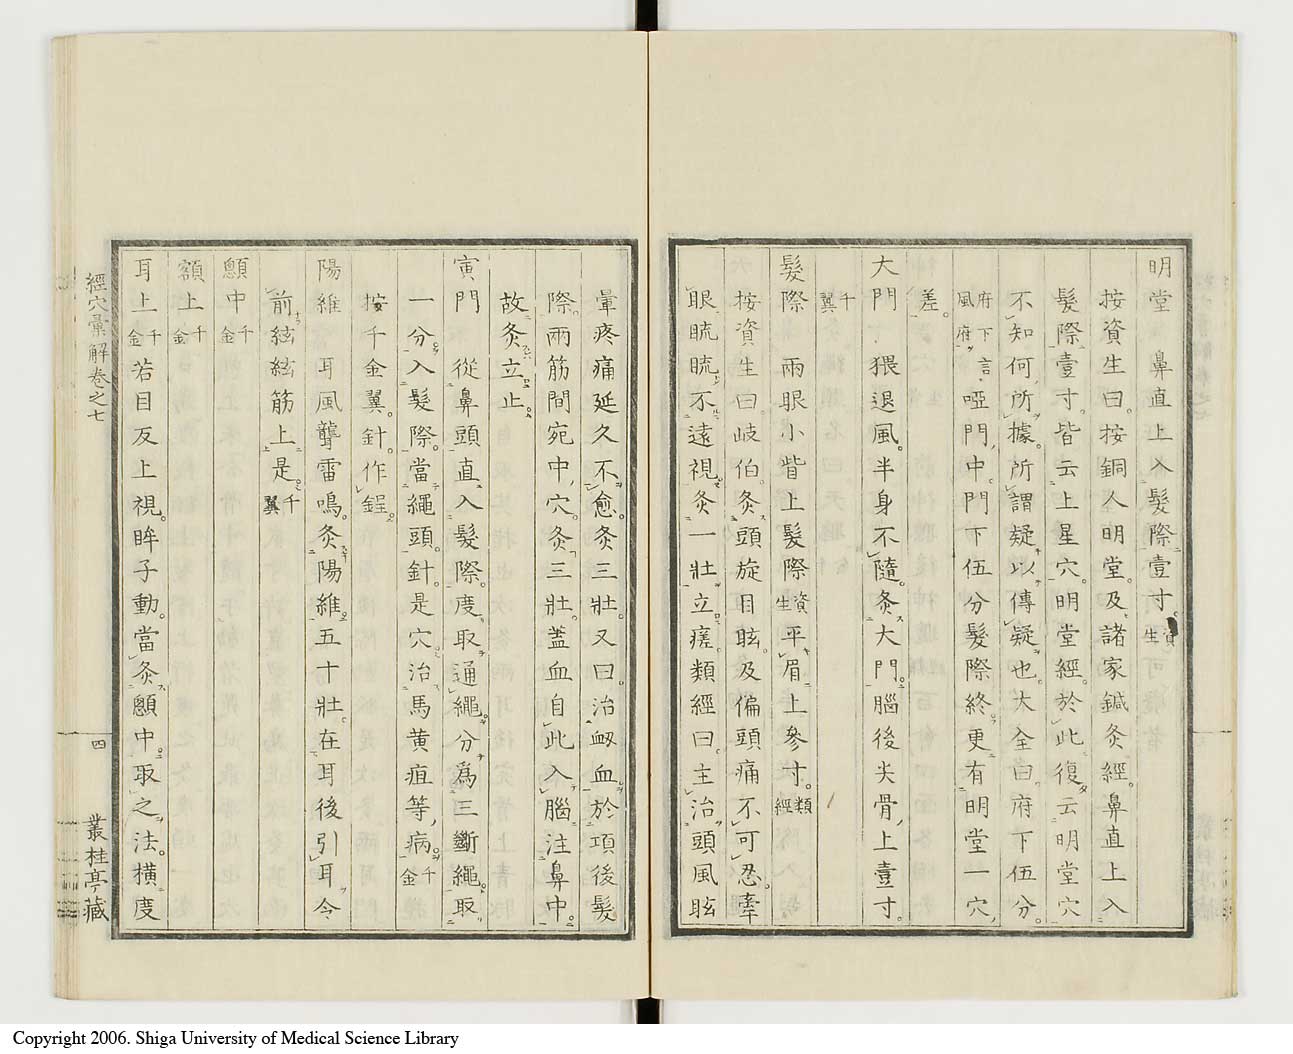 明堂 鼻直上入髮際壹寸。資生
按資生曰。按銅人明堂。及諸家鍼灸經。鼻直上入
髮際壹寸。皆云上星穴。明堂經。於此復云明堂穴
不知何所據。所謂疑以傳疑也。大全曰。府下伍分。
府下言。風府瘂門中。門下伍分髮際終。更有明堂一穴
差。
大門 猥退風。半身不隨。灸大門。腦後尖骨上壹寸。
千翼
髮際 兩眼小眥上髮際資生平眉上參寸。類經
按資生曰岐伯灸頭旋目眩。及偏頭痛不可忍。牽
眼䀮䀮不遠視。灸一壯立瘥。類經曰。主治頭風眩
暈疼痛延久不愈。灸三壯。又曰。治衂血於項後髮
際。兩筋間宛中穴。灸三壯。蓋血自此入腦注鼻中。
故灸立止。
寅門 從鼻頭直入髮際。度取通繩。分為三斷繩。取
一分入髮際。當繩頭。針是穴。治馬黄疸等病。千金
按千金翼。針作鋥。
陽維 耳風聾雷鳴。灸陽維五十壯。在耳後引耳令
前。絃絃筋上是。千翼
顖中千金
額上千金
耳上千金 若目反上視。眸子動。當灸顖中。取之法。橫度
經穴彙解卷之七
四
叢桂亭藏
Copyright 2006. Shiga University of Medical Science Library